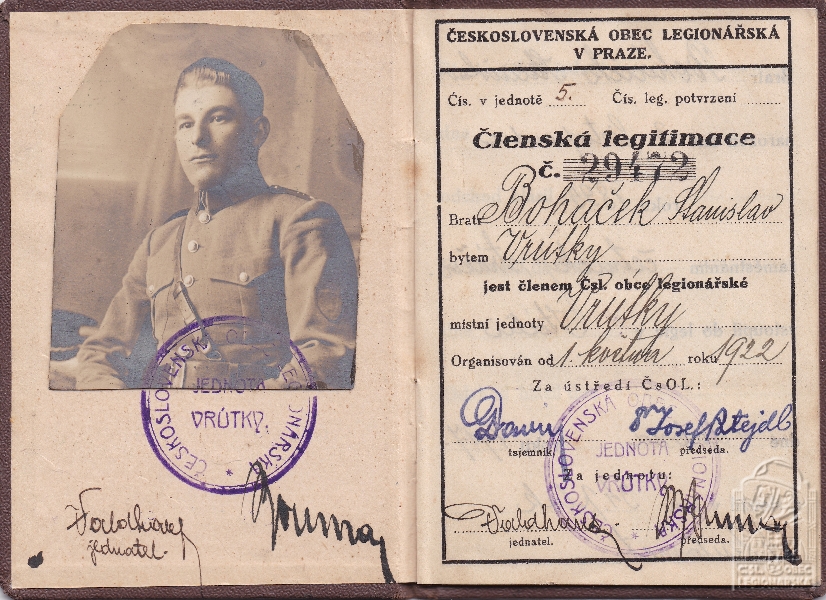 ČESKOSLOVENSKÁ OBEC LEGIONÁŘSKÁ
JEDNOTA
VRÚTKY.
jednatel.
ČESKOSLOVENSKÁ OBEC LEGIONÁŘSKÁ
V PRAZE.
Čís. v jednotě 5. Čís. leg. potvrzení
Členská legitimace
č. 29472
Bratr Boháček Stanislav
bytem Vrútky
jest členem Čsl. obce legionářské
místní jednoty Vrútky
Organisován od 1. května roku 1922
Za ústředí ČsOL.:
Dr Josef Patejdl
tajemník. předseda.
Za jednotu:
ČESKOSLOVENSKÁ OBEC LEGIONÁŘSKÁ
JEDNOTA
VRÚTKY.
jednatel. předseda.
ČSL. OBEC
LEGIONÁŘSKÁ